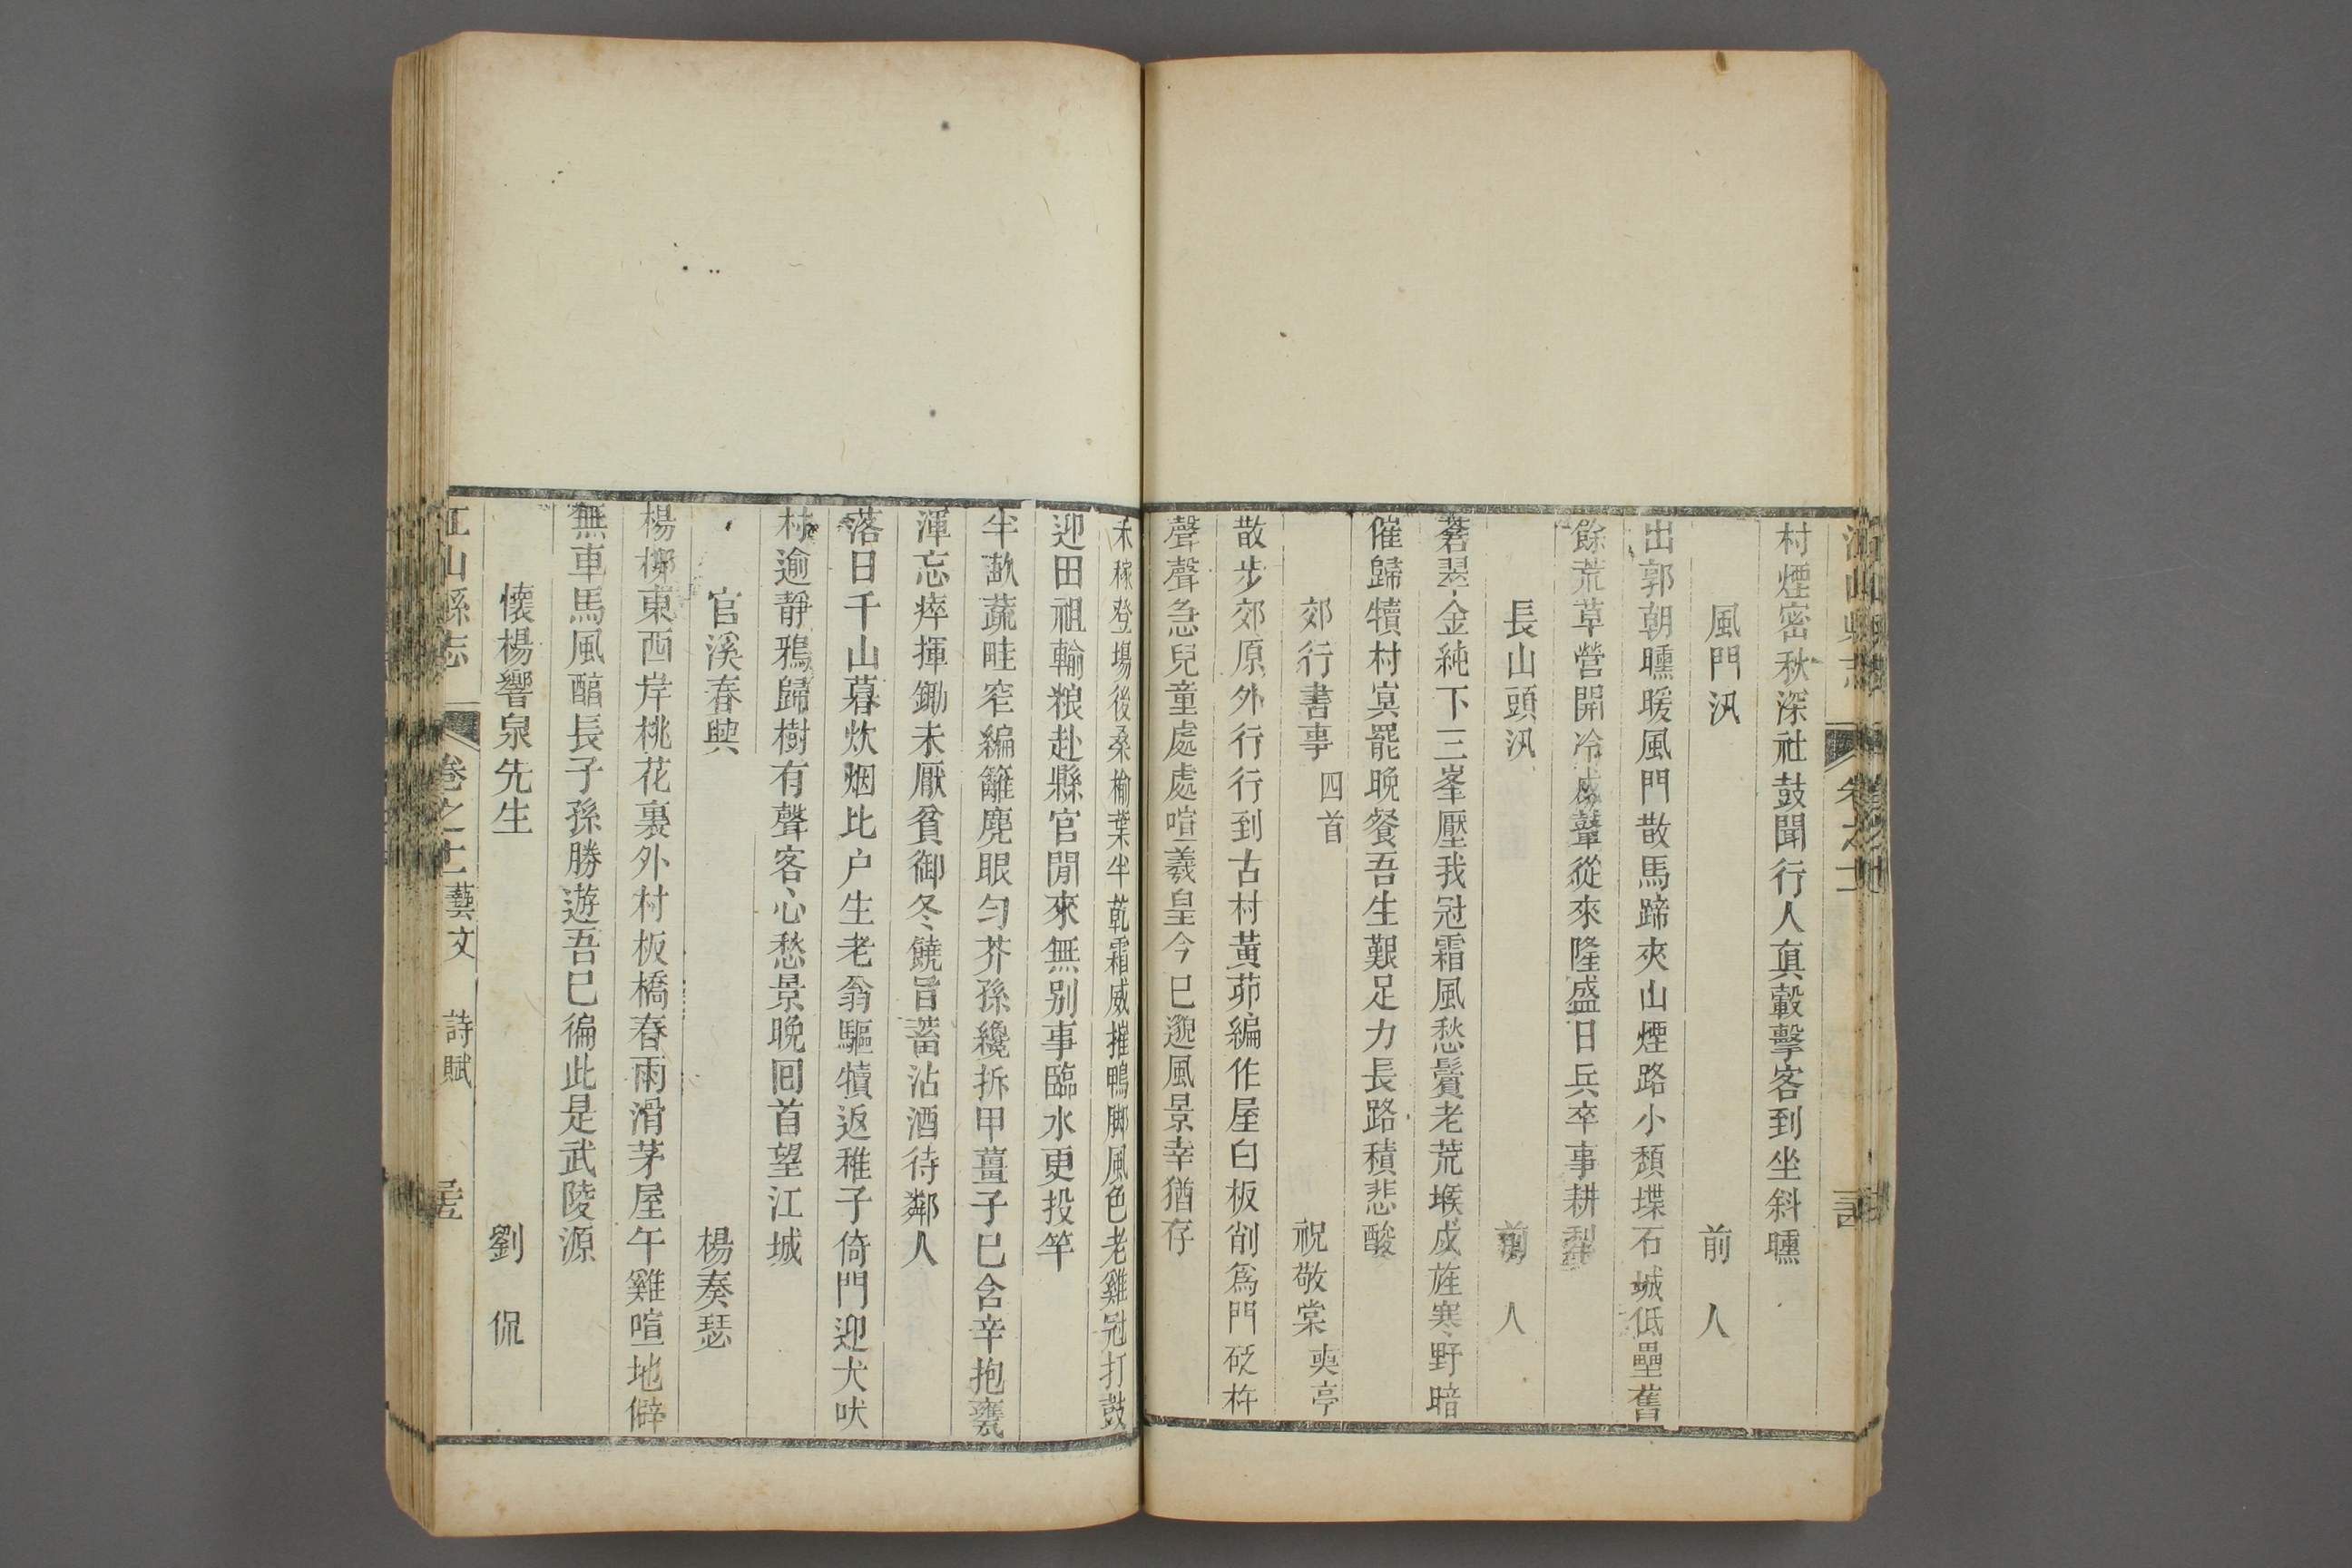 村煙密秋深社鼓聞行人眞轂擊客到坐斜曛
風門汛 前人
出郭朝曛暖風門散馬蹄夾山煙路小頹堞石城低壘舊
餘荒草營開冷戍鼙從來隆盛日兵卒事耕犁
長山頭汛 前人
蒼翠金純下三峯壓我冠霜風愁鬢老荒堠戍旌寒野暗
催歸犢村寞罷晚餐吾生艱足力長路積悲酸
郊行書事 四首 祝敬棠 奭亭
散步郊原外行行到古村黃茆編作屋白板削爲門砭杵
聲聲急兒童處處喧羲皇今已邈風景幸猶存
禾稼登場後桑榆葉半乾霜威摧鴨脚風色老雞冠打鼓
迎田祖輸粮赴縣官閒來無别事臨水更投竿
半畝蔬畦窄編籬麂眼勻芥孫纔拆甲薑子已含辛抱甕
渾忘瘁揮鋤未厭貧御冬饒旨蓄沽酒待鄰人
落日千山暮炊烟比户生老翁驅犢返稚子倚門迎犬吠
村逾靜鴉歸樹有聲客心愁景晚回首望江城
官溪春興 楊奏瑟
楊櫛東西岸桃花裏外村板橋春雨滑茅屋午雞喧地僻
無車馬風醕長子孫勝遊吾已徧此是武陵源
懷楊響泉先生 劉侃
江山縣志 卷之十二 藝文 詩賦